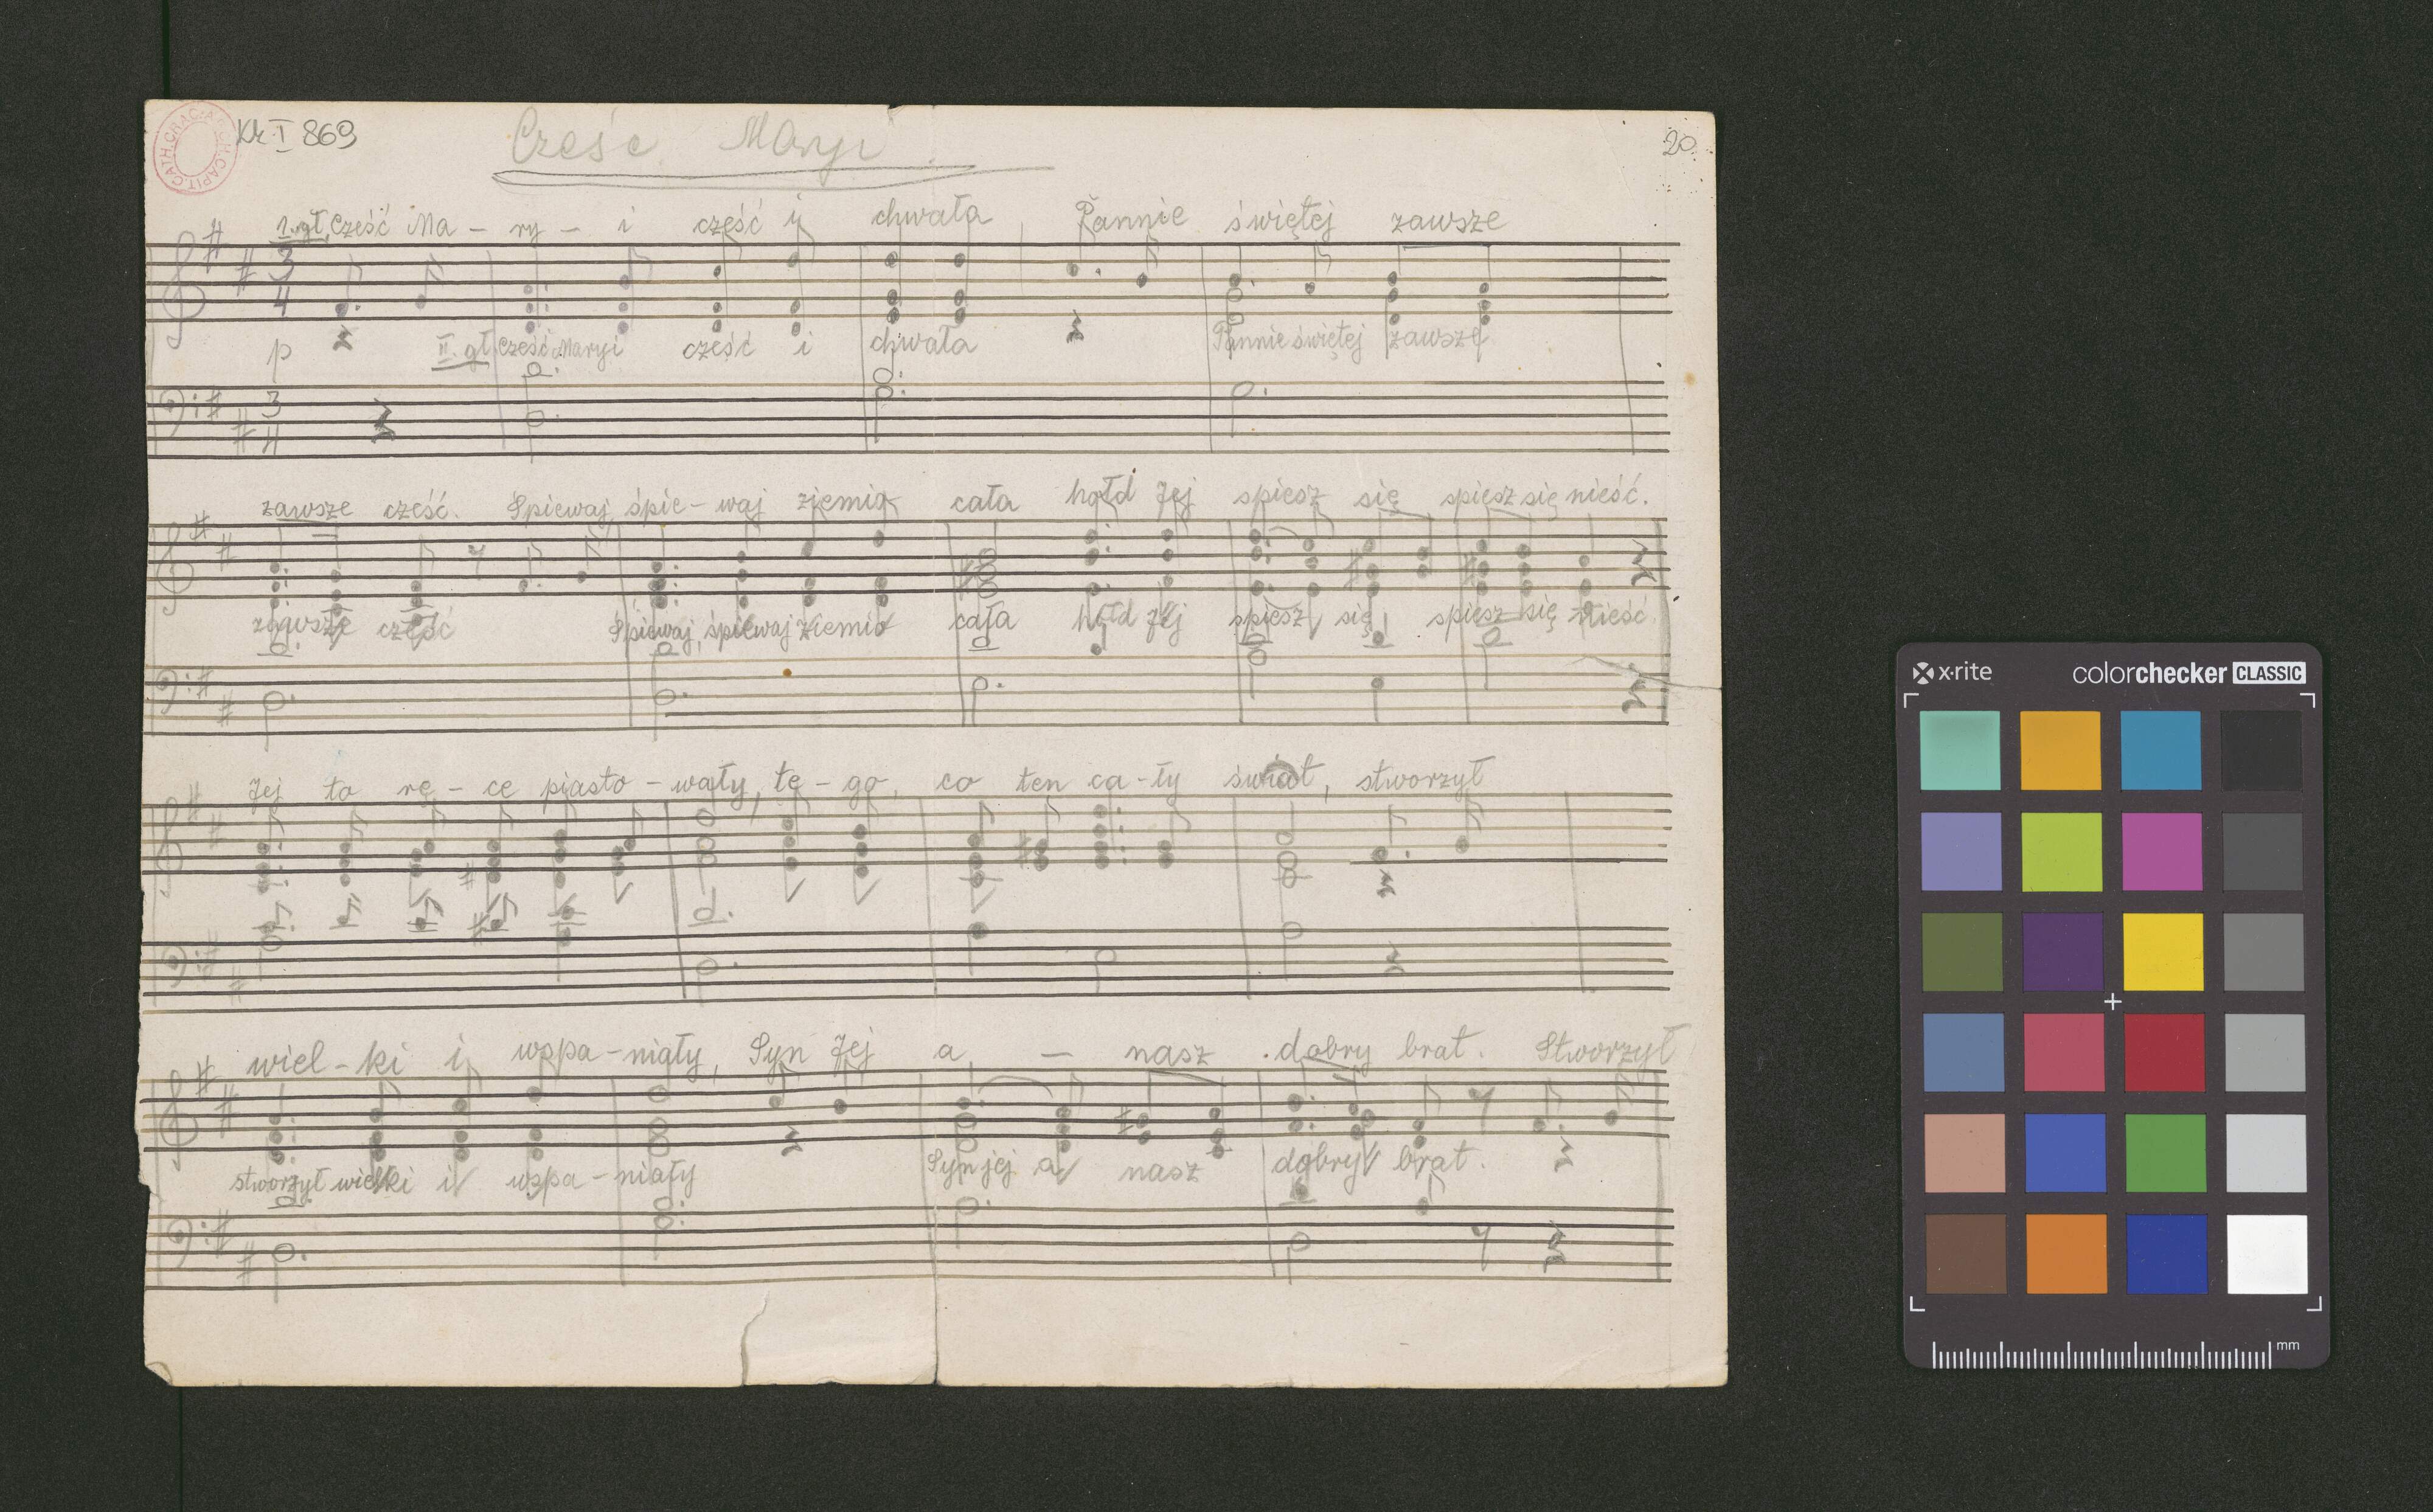 Kk I 869
Cześć Maryi
20
1. gł. Cześć Ma - ry - i cześć i chwała, Pannie świętej zawsze
3 4
p
II. gł. Cześć Maryi cześć i chwała Pannie świętej zawsze
3 4
zawsze cześć. Śpiewaj, śpie - waj ziemio cała hołd Jej spiesz się spiesz się nieść.
zawsze cześć Śpiewaj, śpiewaj ziemio cała hołd Jej spiesz się spiesz się nieść.
Jej to rę - ce piasto - wały, te - go, co ten ca - ły świat, stworzył
wiel - ki i wspa - niały, Syn Jej a - nasz dobry brat. Stworzył
stworzył wielki i wspa - niały Syn jej a nasz dobry brat.
x·rite colorchecker CLASSIC
mm